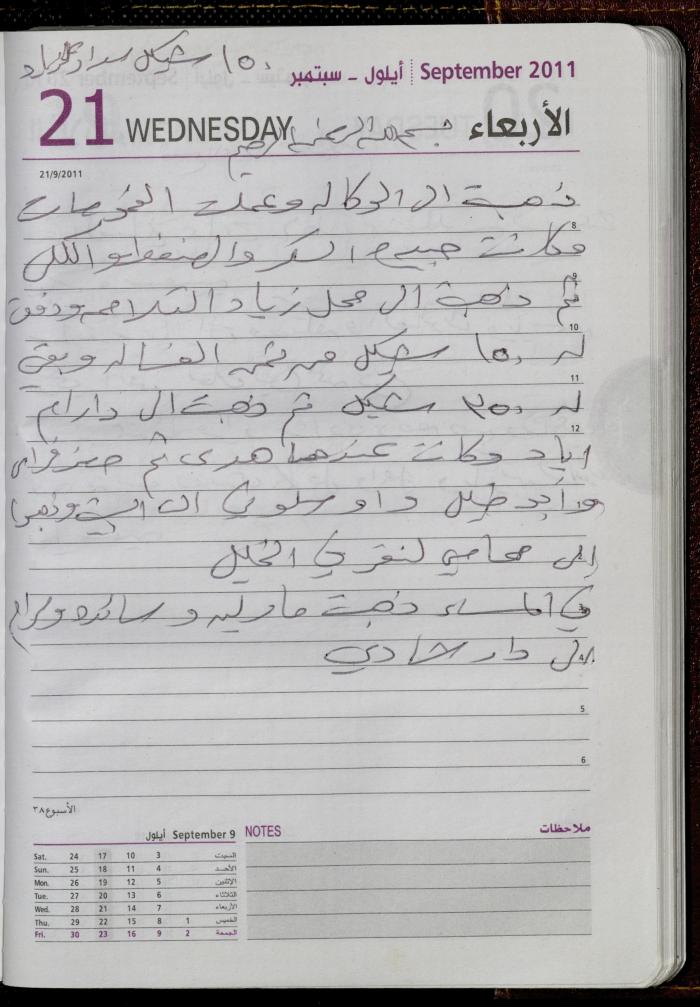 ١٥٠ شيكل سداد
أيلول - سبتمبر September 2011
21 WEDNESDAY الأربعاء
بسم الله الرحمن الرحيم
21/9/2011
ذهبة الى الوكاله وعملت الفحوصات
8
وكانت جميع السكر والضغط والكلى
9
ثم ذهبة الى محل زياد التلاحمه ودفق
10
له ١٥٠ شيكل من ثمن الغساله وبقي
11
له ٣٥٠ شيكل ثم ذهبت الى دار ام
12
اياد وكانت عندها هدى ثم
وابو خليل و سلوى الى
إلى محامي في الخليل
في المساء ذهبت مارلين و سائده ومرام
الى دار شادي
5
6
الأسبوع ٣٨
September 9 أيلول
Sat. 24 17 10 3 السبت
Sun. 25 18 11 4 الأحد
Mon. 26 19 12 5 الإثنين
Tue. 27 20 13 6 الثلاثاء
Wed. 28 21 14 7 الأربعاء
Thu. 29 22 15 8 1 الخميس
Fri. 30 23 16 9 2 الجمعة
NOTES ملاحظات